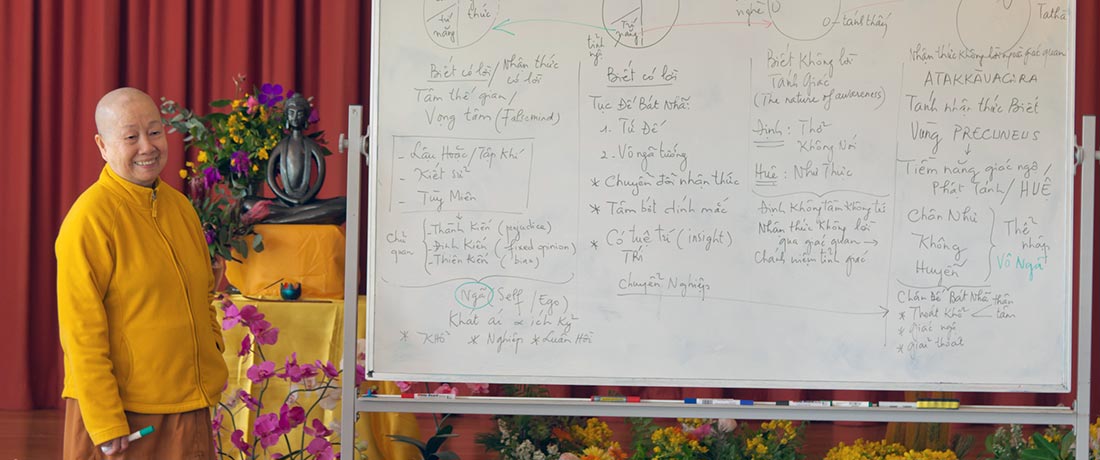 trí năng
thức
Biết có lời / Nhận thức có lời
Tâm thế gian /
Vọng tâm (False mind)
- Lậu Hoặc / Tập Khí
- Kiết sử
- Tùy Miên
Chủ quan
- Thành Kiến (prejustice)
- Định Kiến (fixed opinion)
- Thiên Kiến (bias)
Ngã (Self / Ego)
Khát ái ích kỷ
* Khổ * Nghiệp * Luân Hồi
Trí năng
tỉnh ngộ
Biết có lời
Tục Đế Bát Nhã:
1. Tứ Đế
2. Vô ngã tướng
* Chuyển đổi nhận thức
* Tâm bớt dính mắc
* Có tuệ trí (insight)
TRí
Chuyển Nghiệp
nghe
0
0 - tánh thấy
Biết Không lời
Tánh Giác
(The nature of awareness)
Định: Thể Không Nói
Huệ: Như Thực
Định Không tầm Không tứ
Nhận thức Không lời
qua giác quan →
Chánh niệm tỉnh giác
Tathā
Nhận thức không lời ngoài giác quan
ATAKKĀVACARA
Tánh nhận thức Biết
Vùng PRECUNEUS
↓
Tiềm năng giác ngộ
Phật Tánh / HUỆ
Chân Như
Không
Huyễn
Thể nhập
Vô Ngã
Chân Đế Bát Nhã
* Thoát Khổ < thân tâm
* giác ngộ
* giải thoát